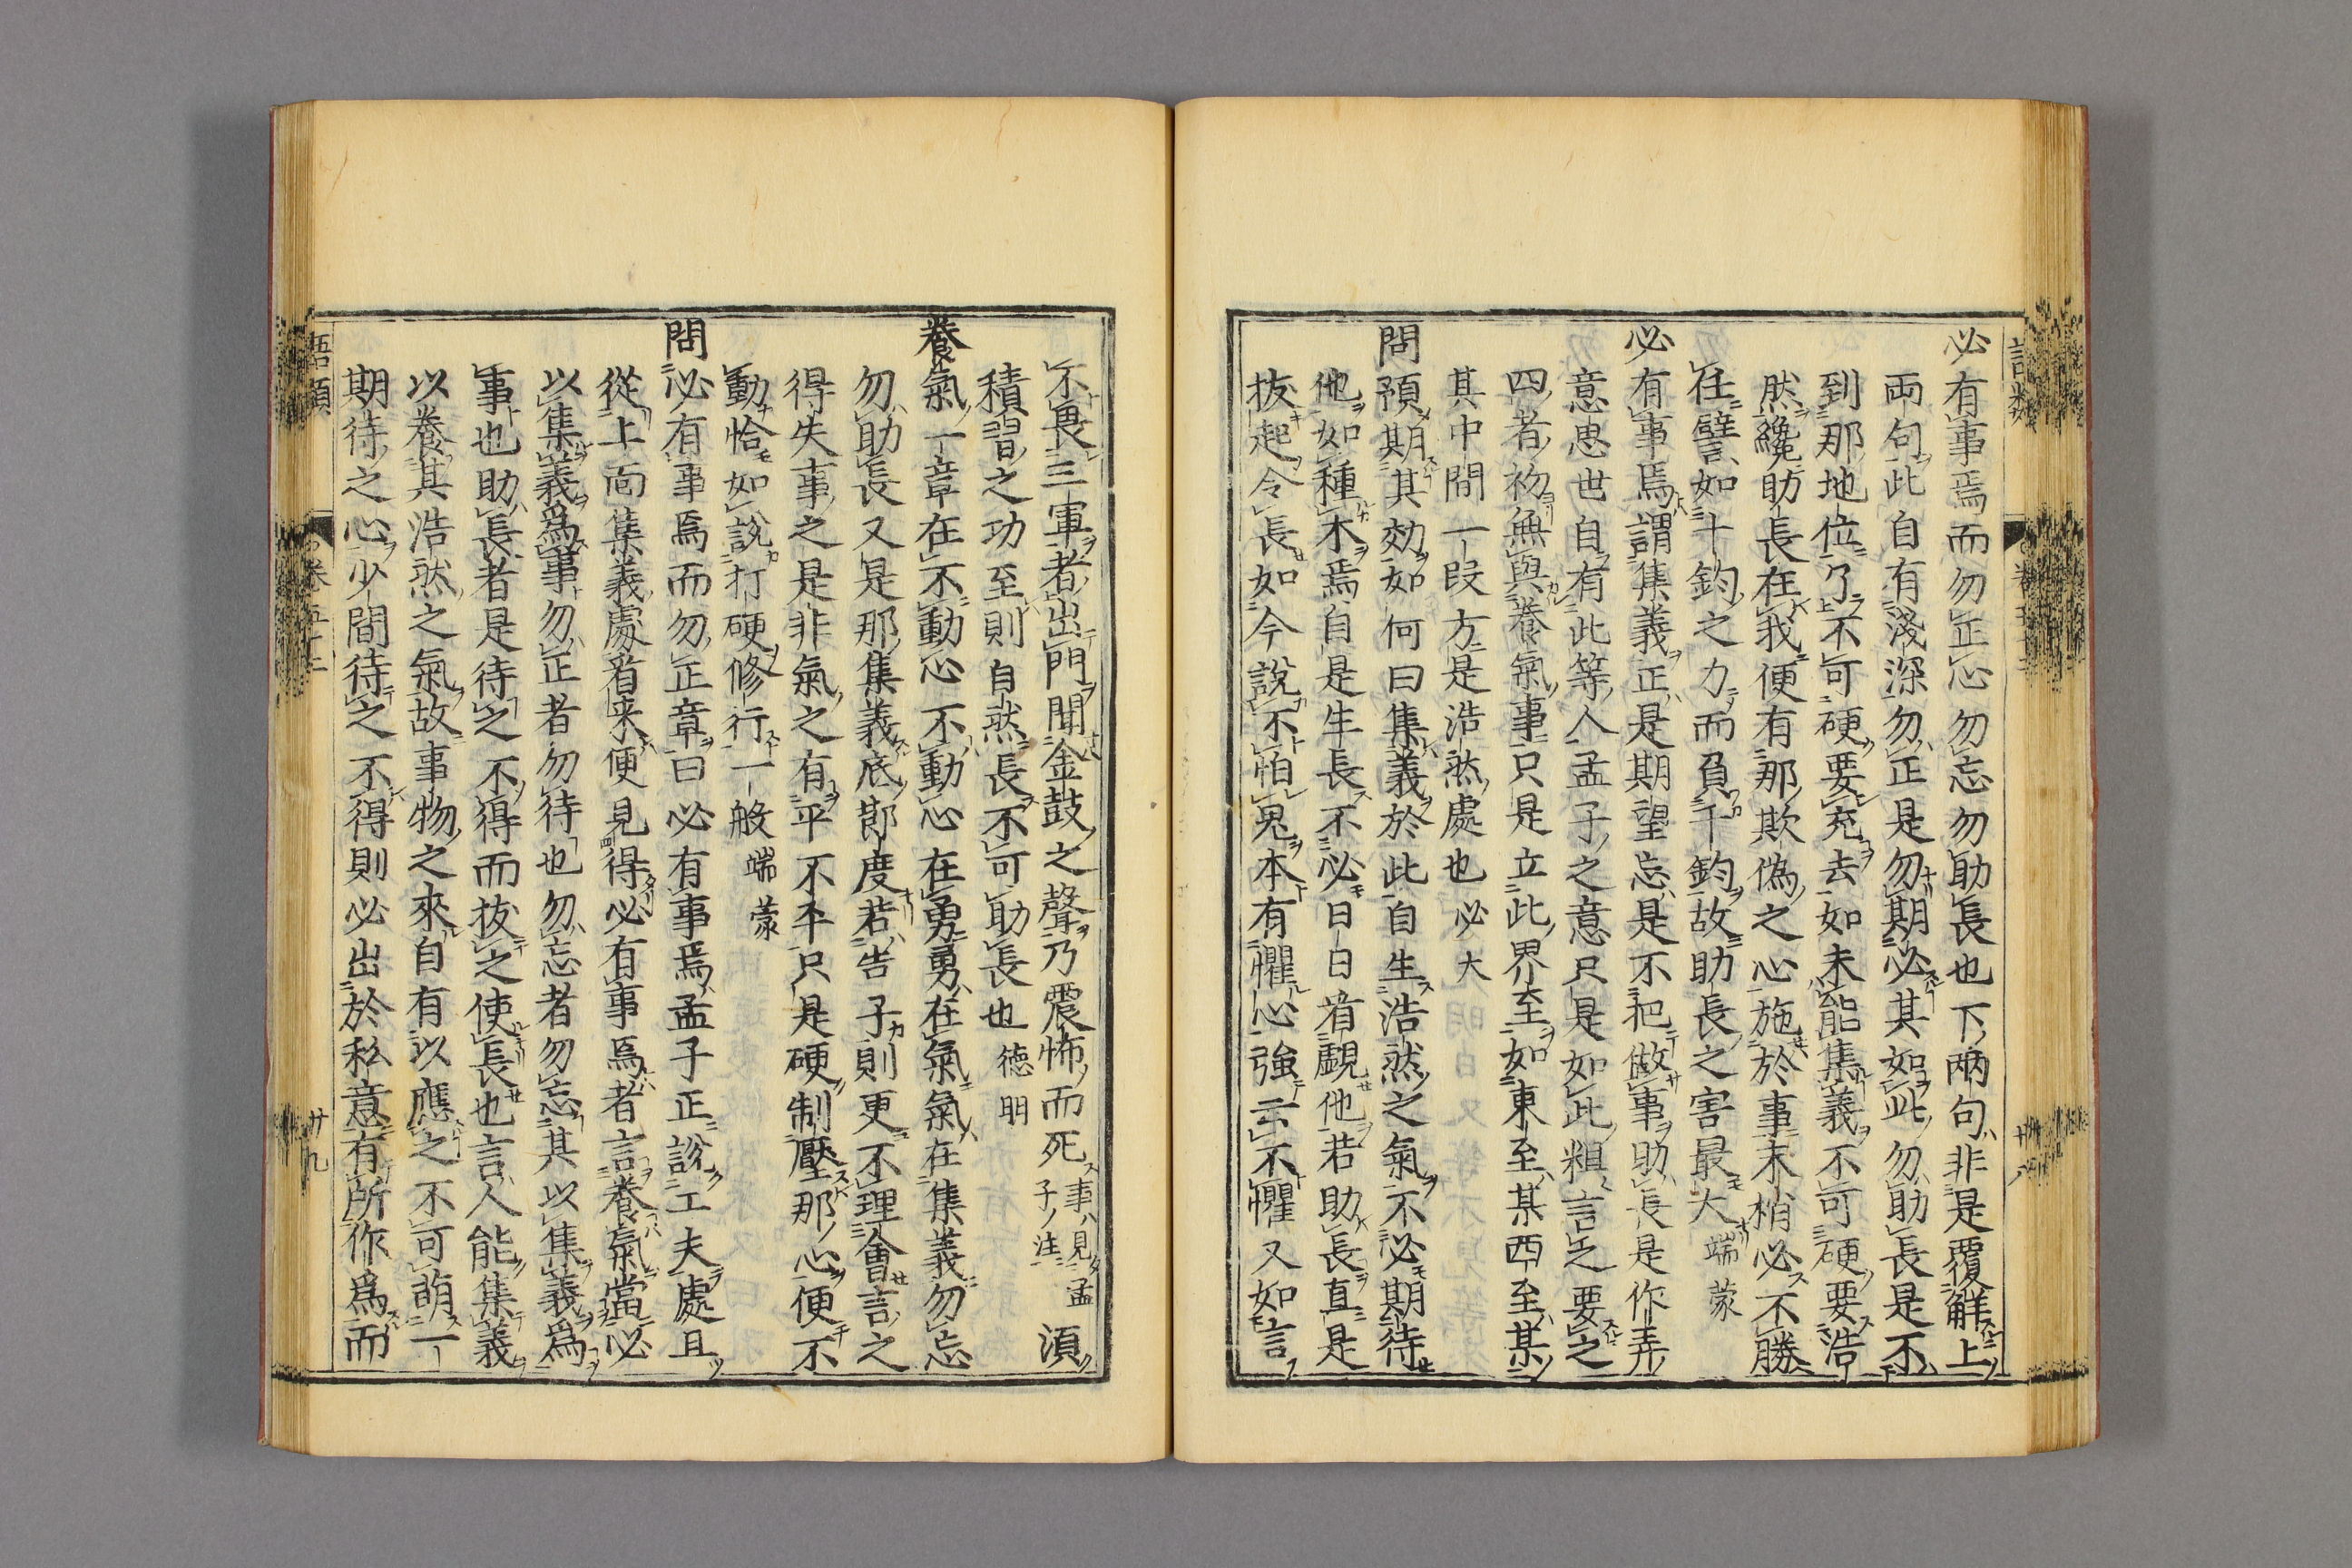 必有事焉而勿正心勿忘勿助長也下兩句非是覆觧上
両句此自有淺深勿正是勿期必其如此勿助長是不
到那地位了不可硬要充去如未能集義不可硬要浩
然纔助長在我便有那欺偽之心施於事末梢必不勝
任譬如十鈞之力而負千鈞故助長之害最大端蒙
必有事焉謂集義正是期望忘是不把做事助長是作弄
意思世自有此等人孟子之意只是如此粗言之要之
四者初無與養氣事只是立此界至如東至某西至某
其中間一段方是浩然處也必大
問預期其効如何曰集義於此自生浩然之氣不必期待
他如種木焉自是生長不必日日看覷他若助長直是
拔起令長如今說不怕鬼本有懼心強云不懼又如言
語類 卷五十二 廿八
不畏三軍者出門聞金鼓之聲乃震怖而死事ハ見タ孟子ノ注須
積習之功至則自然長不可助長也德明
養氣一章在不動心不動心在勇勇在氣氣在集義勿忘
勿助長又是那集義底節度若告子則更不理會言之
得失事之是非氣之有平不平只是硬制壓那心便不
動恰如說打硬修行一般端蒙
問必有事焉而勿正章曰必有事焉孟子正說工夫處且
從上面集義處看来便見得必有事焉者言養氣當必
以集義爲事勿正者勿待也勿忘者勿忘其以集義爲
事也助長者是待之不得而拔之使長也言人能集義
以養其浩然之氣故事物之來自有以應之不可萌一
期待之心少間待之不得則必出於私意有所作爲而
語類 卷五十二 廿九